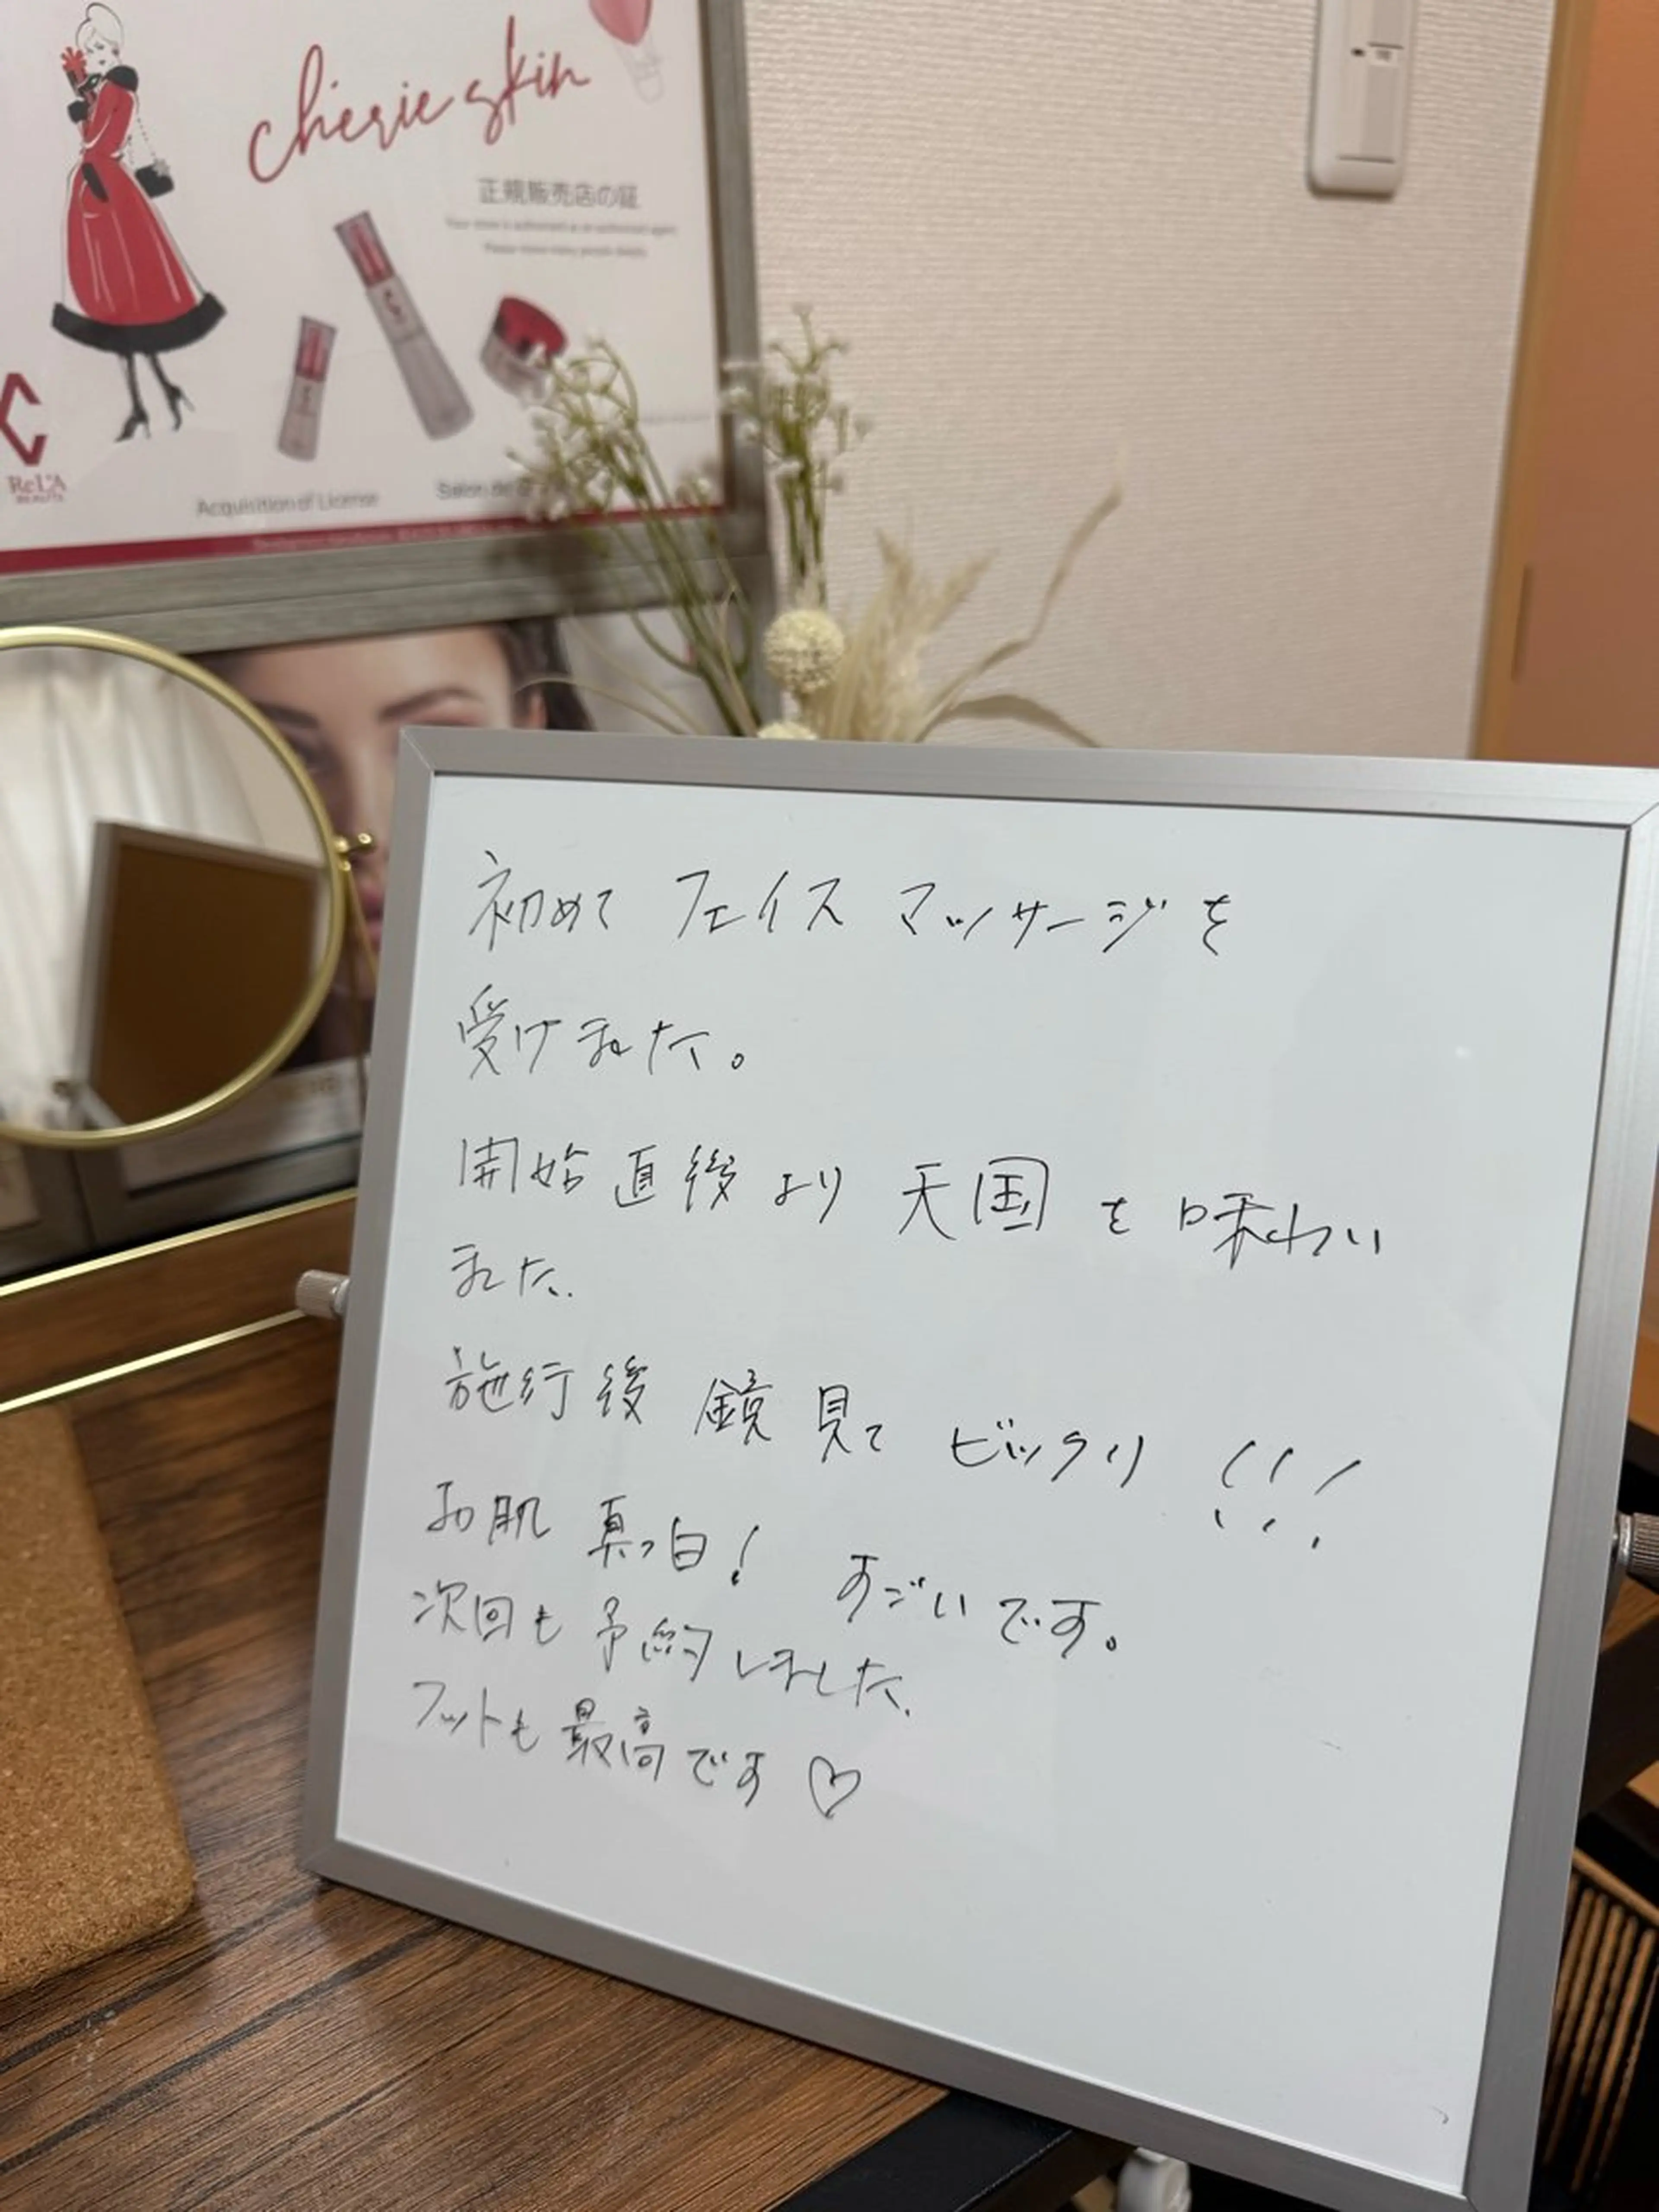 chérie skin
正規販売店の証
ReL'A
BEAUTE
Acquisition of License
Salon de
初めて フェイス マッサージを
受けました。
開始直後より 天国を味わい
ました.
施行後 鏡見て ビックリ!!!
お肌 真っ白! すごいです。
次回も予約しました.
フットも最高です♡